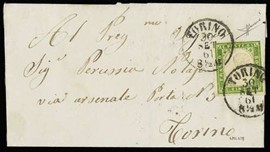 Al Preg.mo
Sig.r Perussia Notajo
via arsenale Porta N. 3
Torino
TORINO
30
SET
61
8½M
TORINO
30
SET
61
8½M